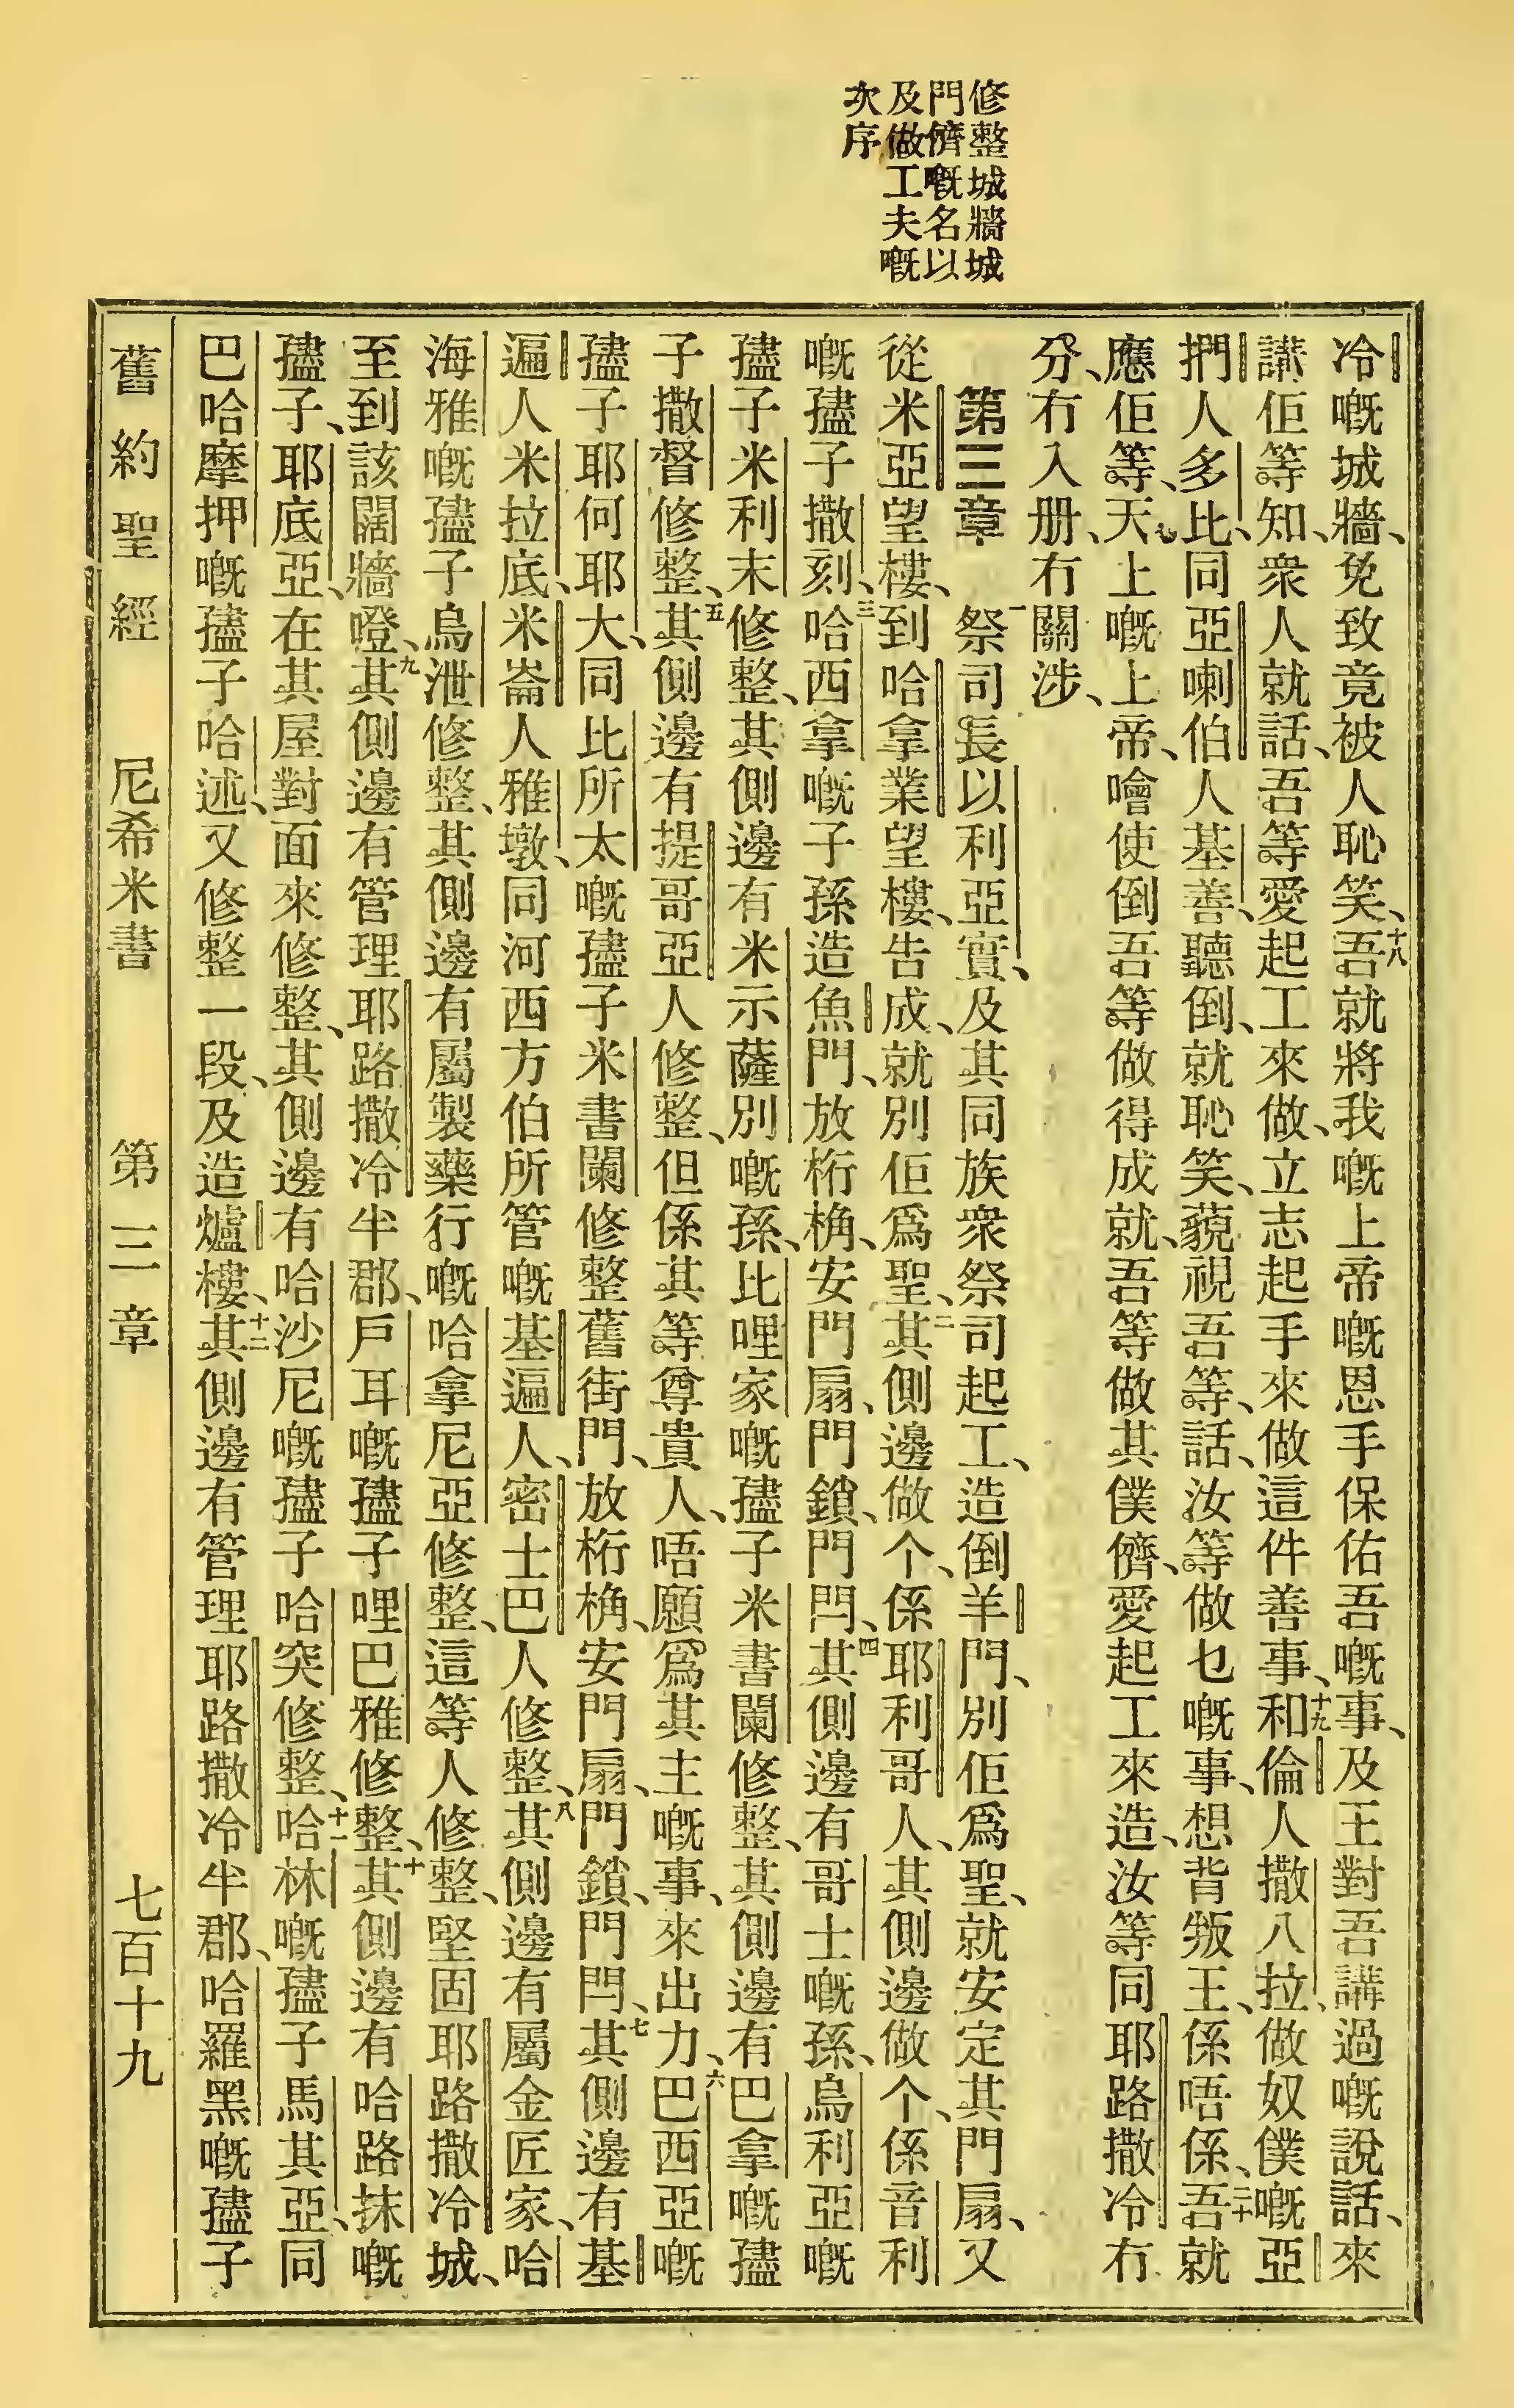 修整城牆城
門儕嘅名以
及做工夫嘅
次序
冷嘅城牆、免致竟被人恥笑、十八吾就將我嘅上帝嘅恩手保佑吾嘅事、及王對吾講過嘅說話、來
講佢等知、衆人就話、吾等愛起工來做、立志起手來做這件善事、十九和倫人撒八拉、做奴僕嘅亞
捫人多比、同亞喇伯人基善、聽倒、就恥笑、藐視吾等、話、汝等做乜嘅事、想背叛王、係唔係、二十吾就
應佢等、天上嘅上帝、噲使倒吾等做得成就、吾等做其僕儕、愛起工來造、汝等同耶路撒冷冇
分、冇入册、冇關涉、
第三章 一祭司長以利亞實、及其同族衆祭司起工、造倒羊門、別佢爲聖、就安定其門扇、又
從米亞望樓、到哈拿業望樓、告成、就別佢爲聖、二其側邊做个、係耶利哥人、其側邊做个、係音利
嘅孻子撒刻、三哈西拿嘅子孫造魚門、放桁桷、安門扇、門鎖、門閂、四其側邊有哥士嘅孫、烏利亞嘅
孻子米利末修整、其側邊有米示薩別嘅孫、比哩家嘅孻子米書闌修整、其側邊有巴拿嘅孻
子撒督修整、五其側邊有提哥亞人修整、但係其等尊貴人、唔願爲其主嘅事、來出力、六巴西亞嘅
孻子耶何耶大、同比所太嘅孻子米書闌修整舊街門、放桁桷、安門扇、門鎖、門閂、七其側邊有基
遍人米拉底、米崙人雅墩、同河西方伯所管嘅基遍人、密士巴人修整、八其側邊有屬金匠家、哈
海雅嘅孻子烏泄修整、其側邊有屬製藥行嘅哈拿尼亞修整、這等人修整、堅固耶路撒冷城、
至到該闊牆嶝、九其側邊有管理耶路撒冷半郡、戶耳嘅孻子哩巴雅修整、十其側邊有哈路抹嘅
孻子、耶底亞、在其屋對面來修整、其側邊有哈沙尼嘅孻子哈突修整、十一哈林嘅孻子馬其亞、同
巴哈摩押嘅孻子哈述、又修整一段、及造爐樓、十二其側邊有管理耶路撒冷半郡、哈羅黑嘅孻子
舊約聖經 尼希米書 第三章 七百十九